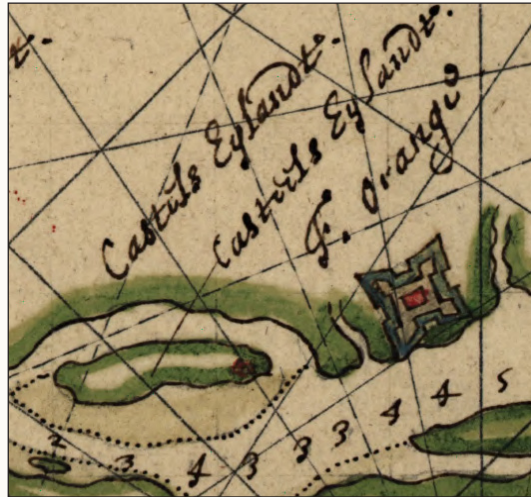 t.
Castiils Eylandt.
Castiils Eylandt.
F. Orangie
2 3 4 3 3 3 4 4 5